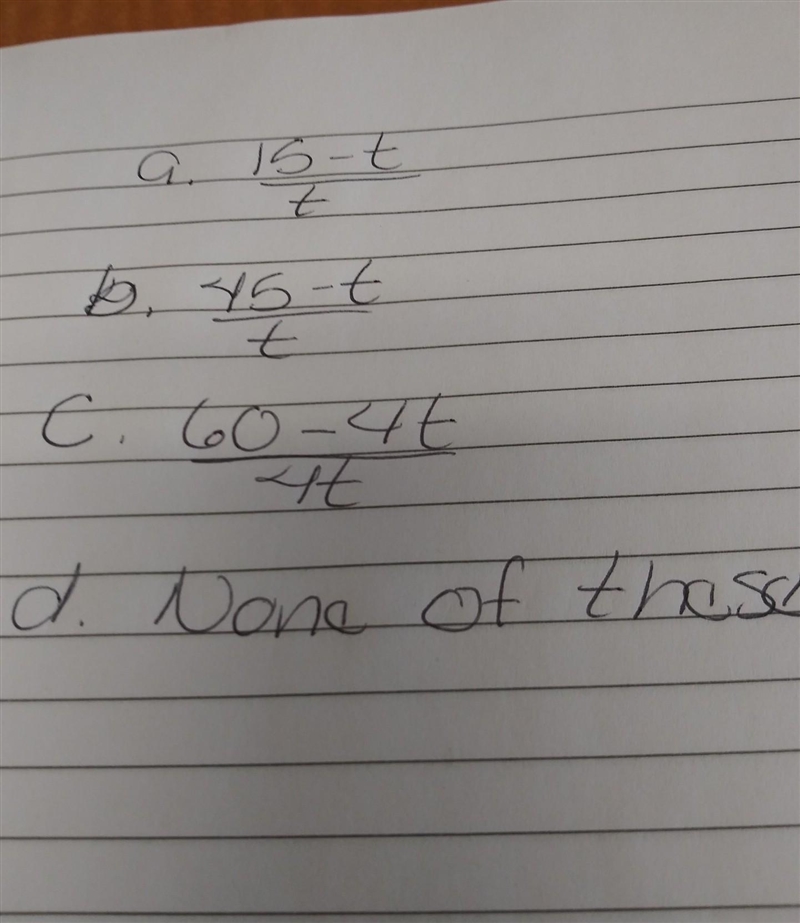 a. 15 - t
t
b. 45 - t
t
c. 60 - 4t
4t
d. None of these